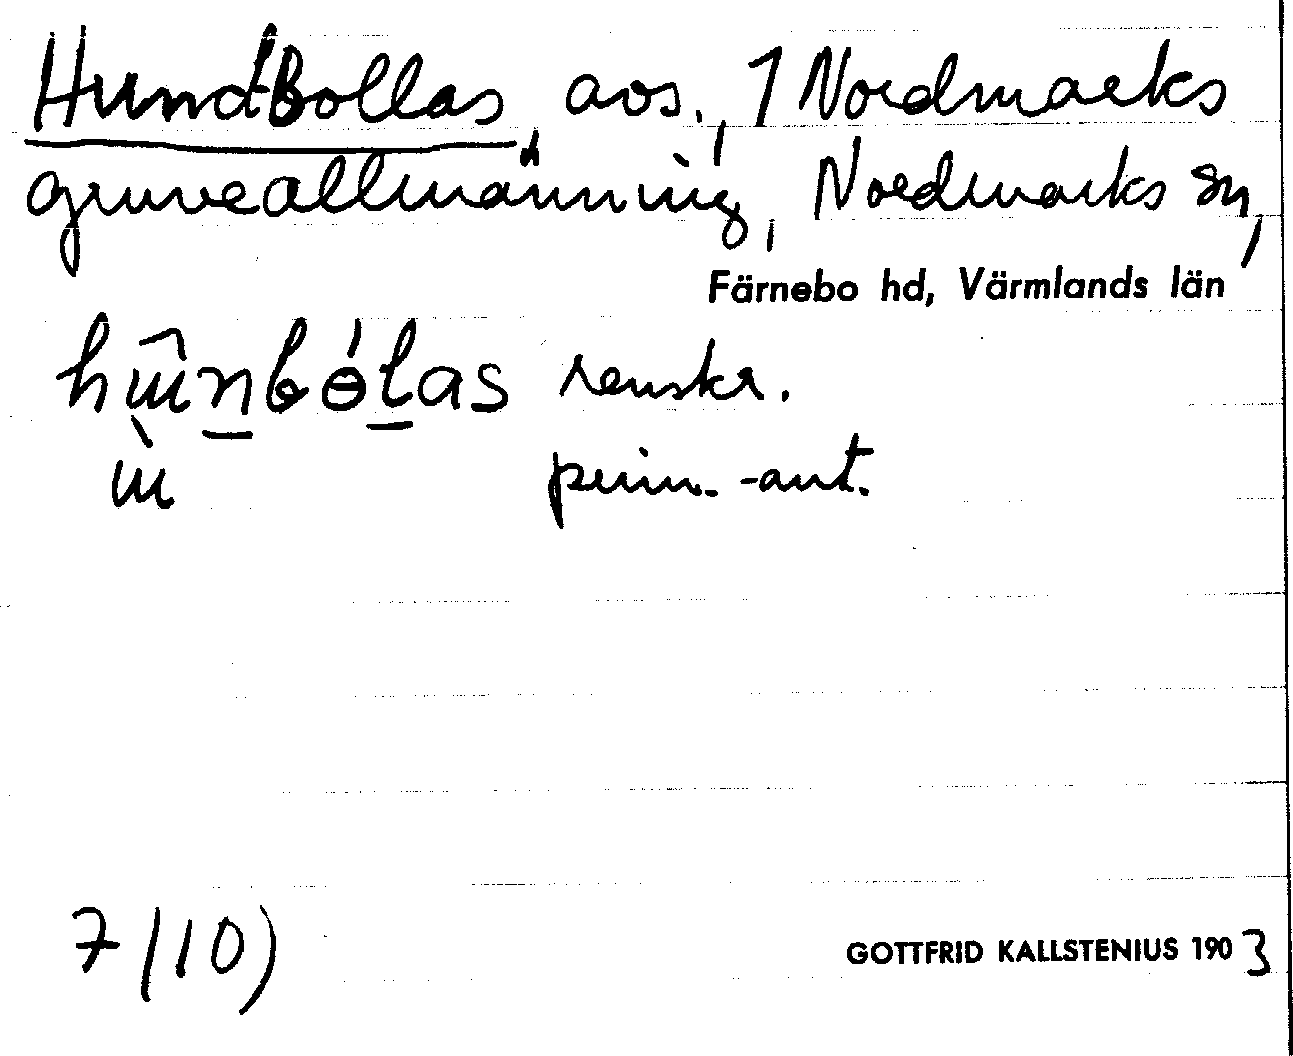 HundBollas, avs., 1 Nordmarks
gruveallmänning, Nordmarks sn,
Färnebo hd, Värmlands län
renskr.
prim.-ant.
7/10)
GOTTFRID KALLSTENIUS 1903